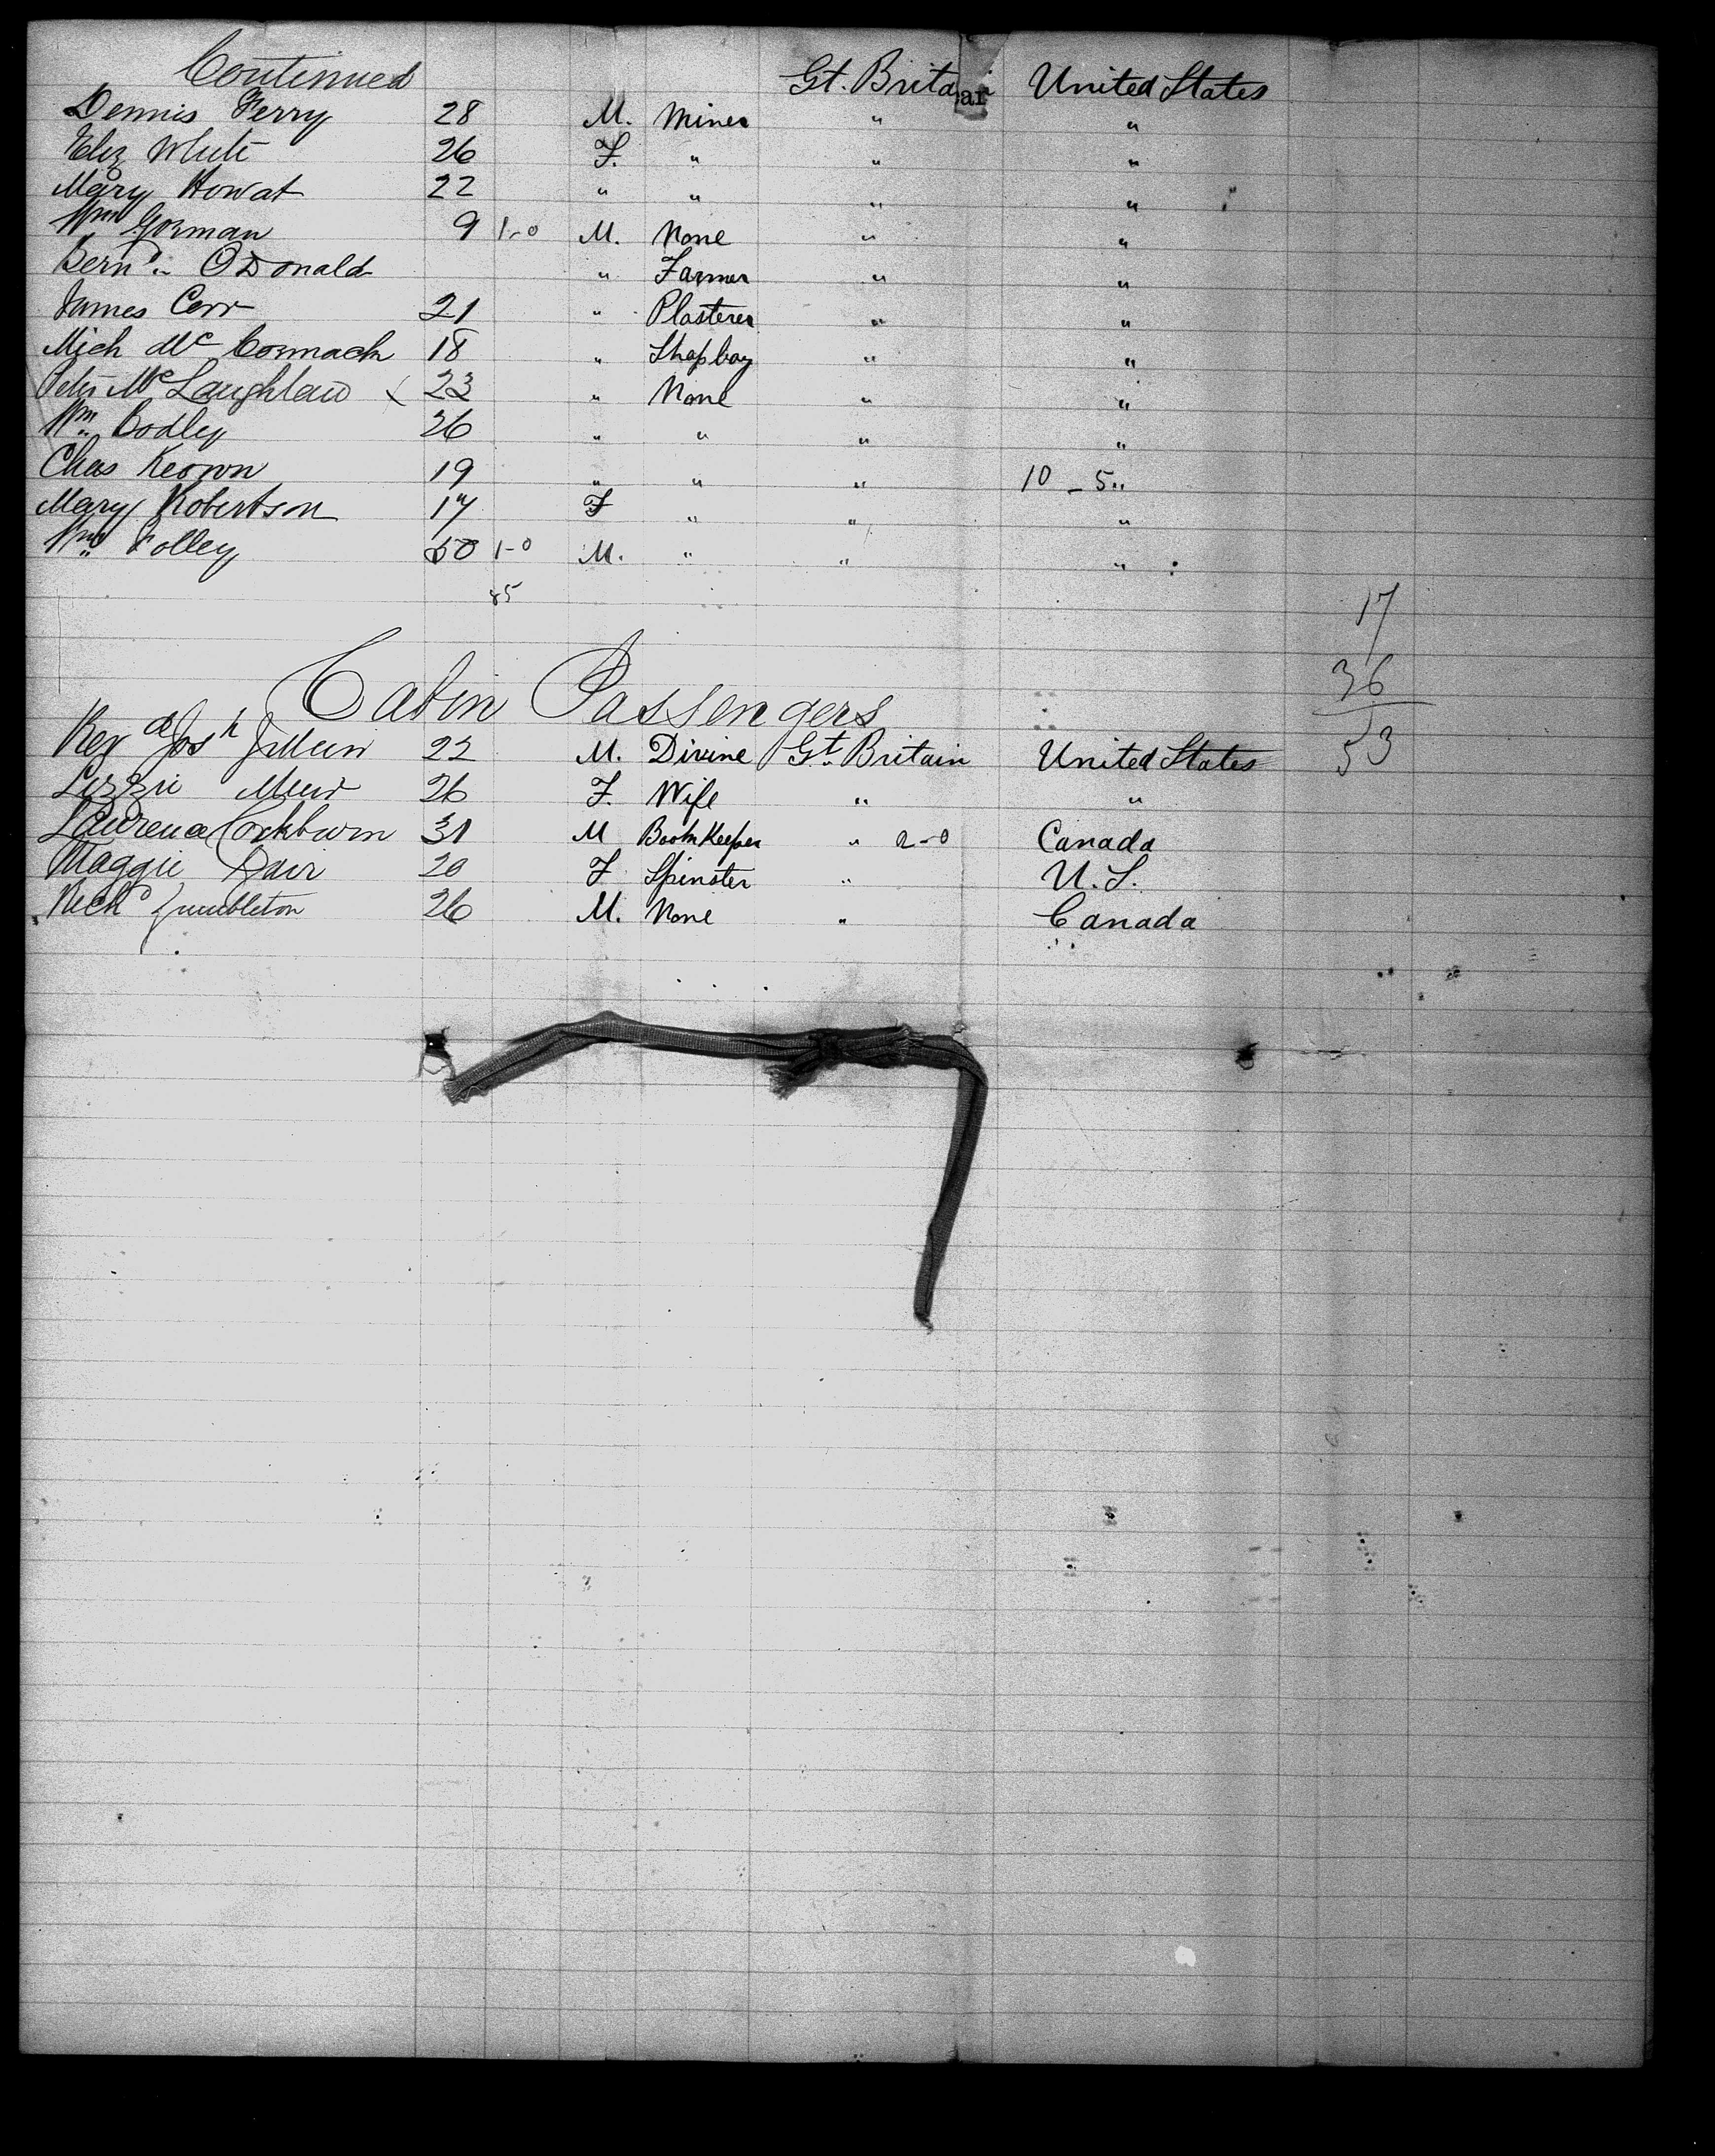 Continued Gt. Britain United States
Dennis Ferry 28 M. Miner " "
Eliz White 26 F. " " "
Mary Howat 22 " " " "
Wm Gorman 9 1-0 M. None " "
Bernd. O'Donald " Farmer " "
James Cerr 21 " Plasterer " "
Mich Mc Cormack 18 " Shopboy " "
Peter McLaughlan x 23 " None " "
Wm. Bodley 26 " " " "
Chas Keown 19 " " " 10 - 5 "
Mary Robertson 17 F " " "
Wm. Folley 50 1-0 M. " " "
85
17
36
53
Cabin Passengers
Revd Josh Muir 22 M. Divine Gt. Britain United States
Lizzie Muir 26 F. Wife " "
Laurence Cockburn 31 M BookKeeper " 2-0 Canada
Maggie 20 F Spinster " U.S.
Richd 26 M. None " Canada